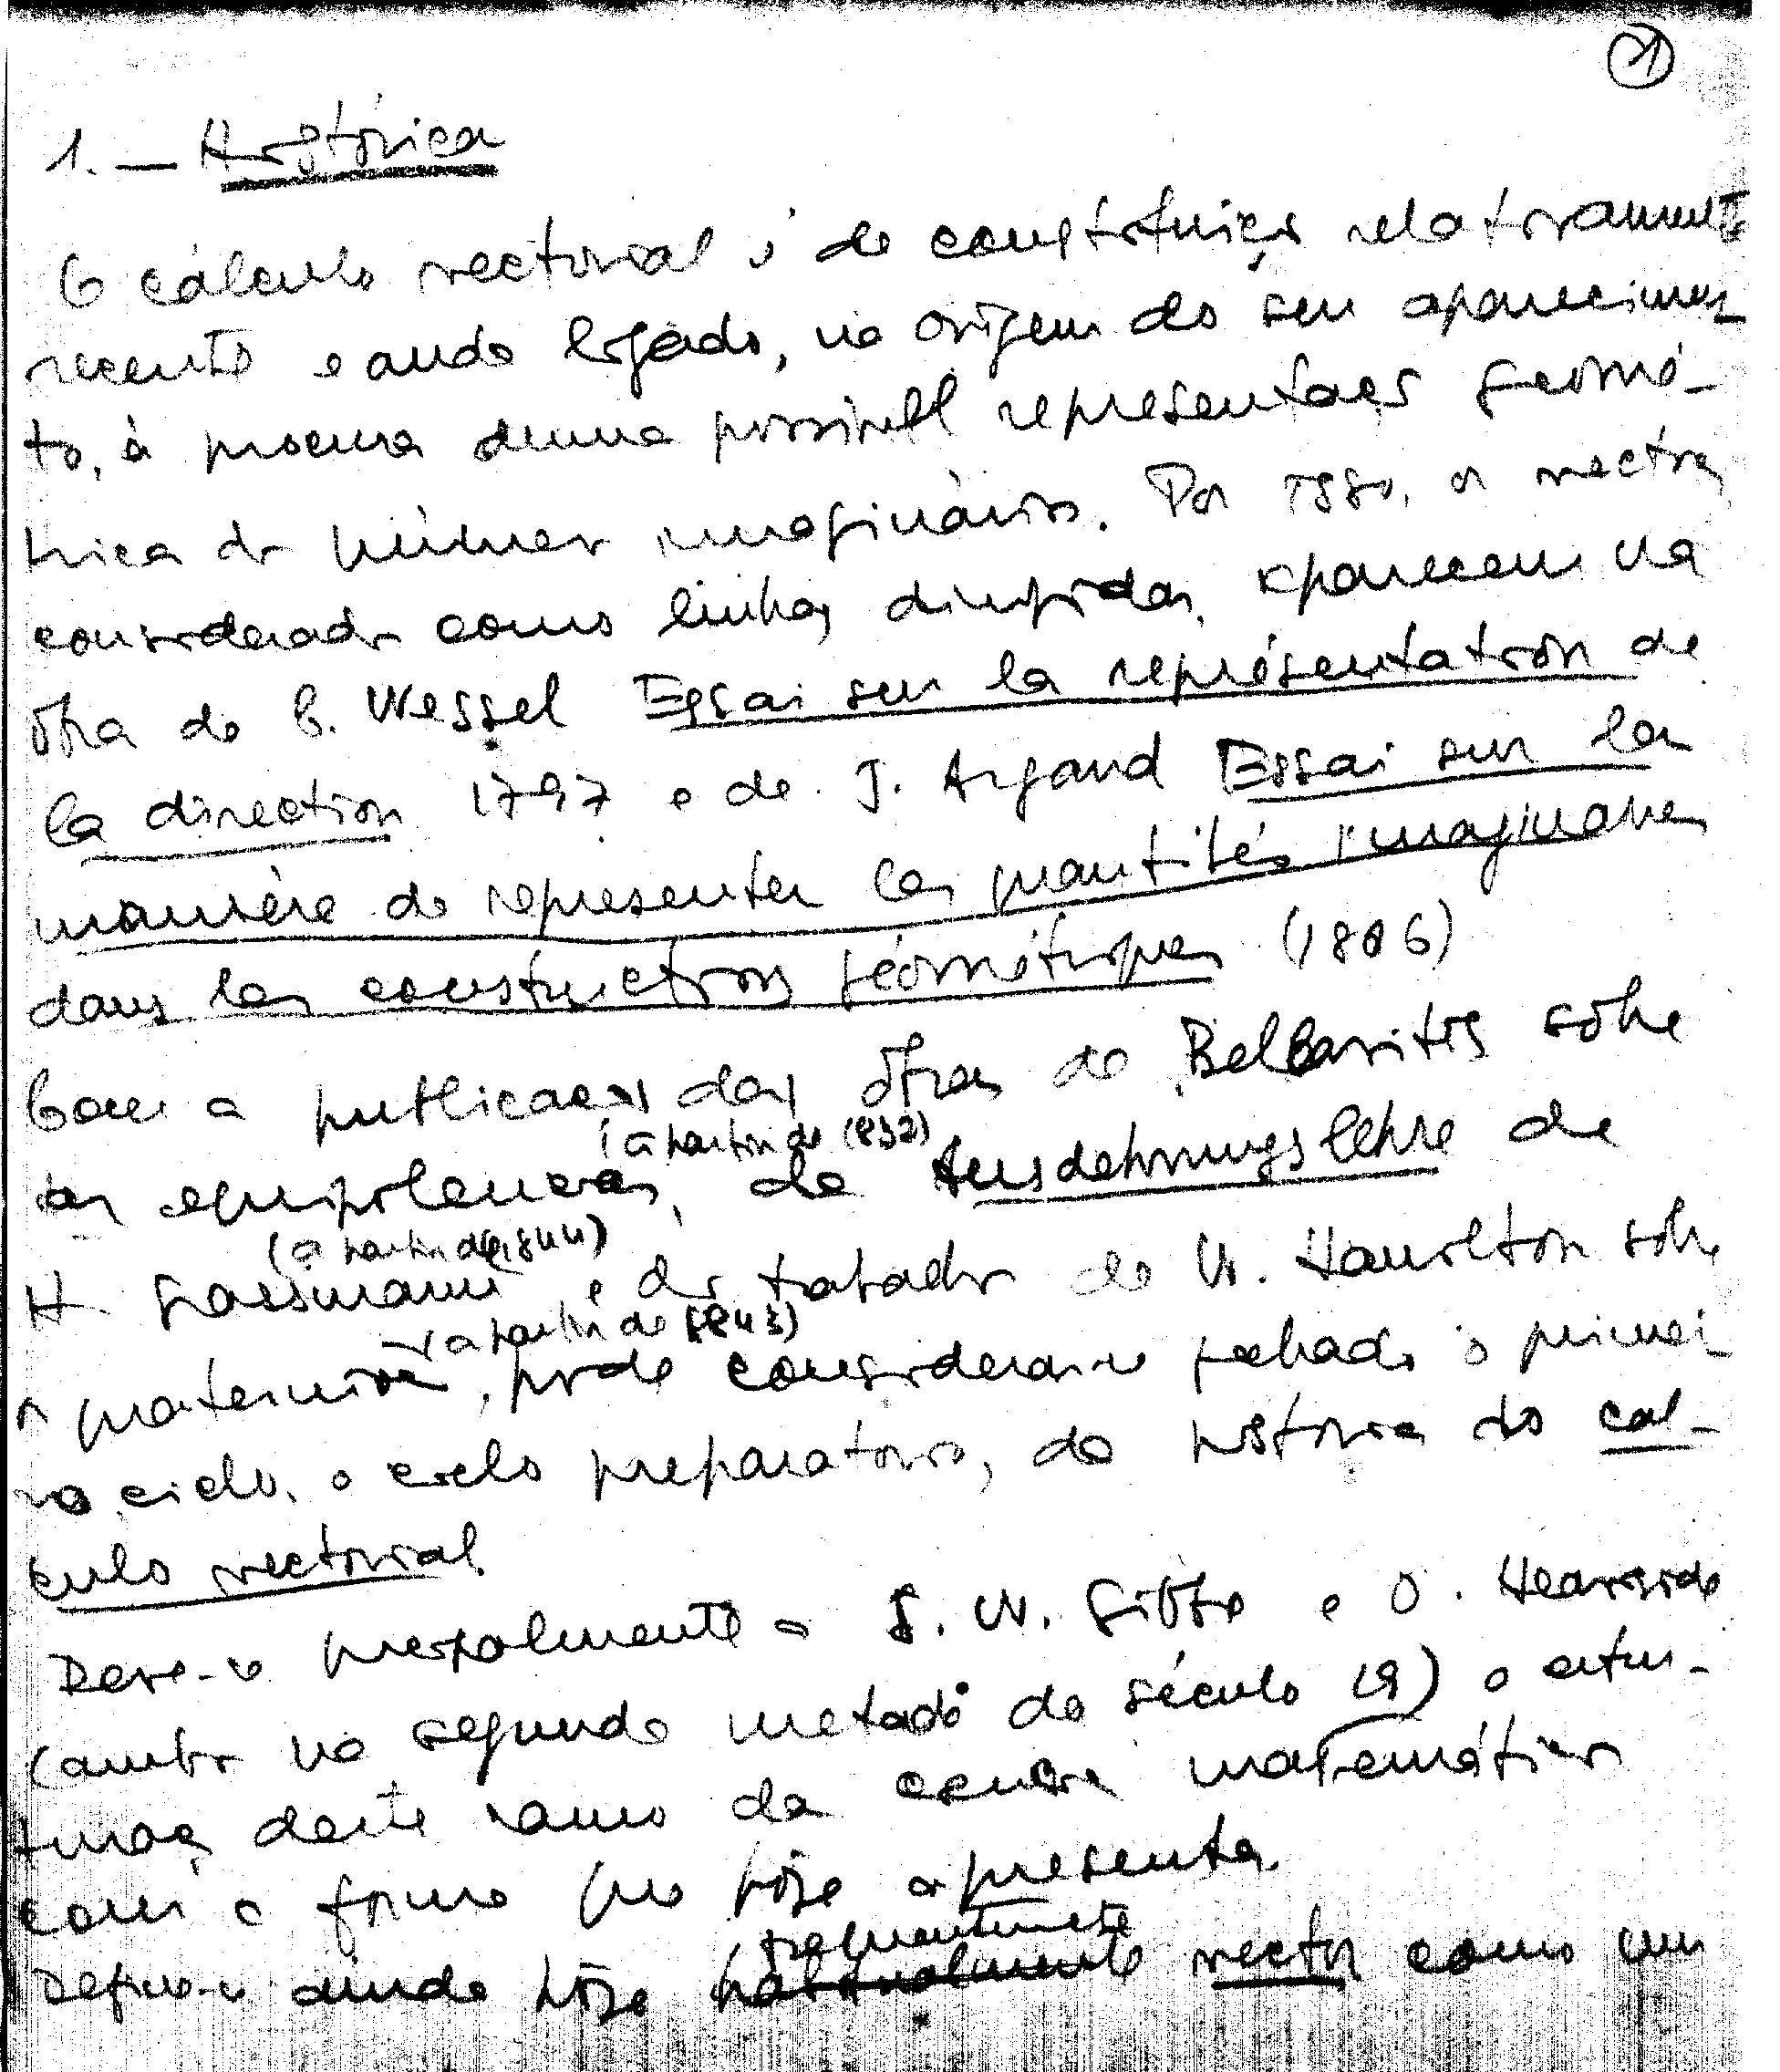 1
1. — Histórica
O cálculo vectorial é de constituição relativamente
recente e anda ligado, na origem do seu aparecimen-
to, à procura duma possível representação geomé-
trica dos números imaginários. Por isso, os vectores,
considerados como linhas dirigidas, aparecem na
obra de C. Wessel Essai sur la représentation de
la direction 1797 e de J. Argand Essai sur la
manière de representer les quantités imaginaires
dans les constructions géométriques (1806)
Com a publicação das obras de Bellavitis sôbre
(a partir de 1832)
as equipolencias, da Ausdehnungslehre de
(a partir de 1844)
H. Grassmann e dos trabalhos de W. Hamilton sôbre
(a partir de 1843)
os quaterniões, pode considerar-se fechado o primei-
ro ciclo, o ciclo preparatorio, da história do cal-
culo vectorial.
Deve-se principalmente a J. W. Gibbs e O. Heaviside
(ambos na segunda metade do século 19) a estru-
turação deste ramo da ciência matemática
com a forma que hoje apresenta.
frequentemente
Define-se ainda hoje habitualmente vector como um